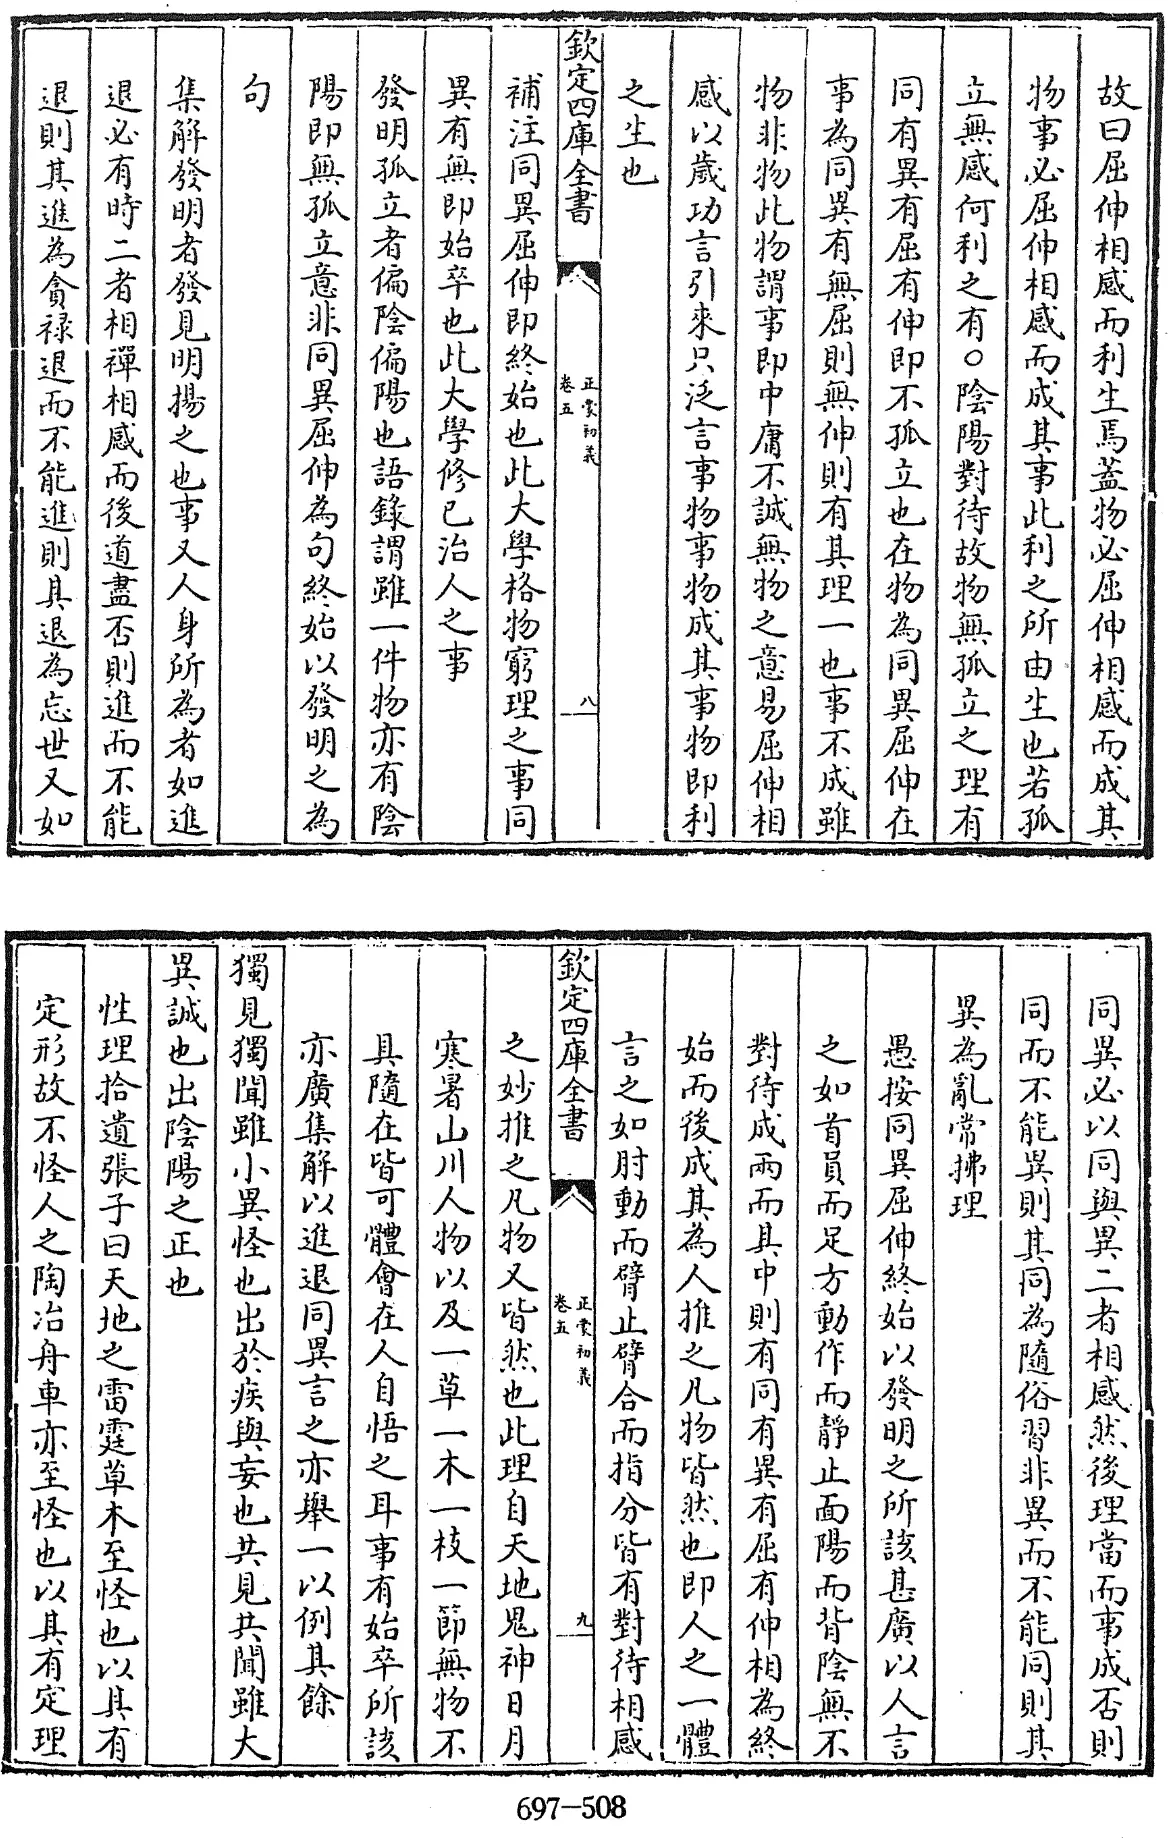 故曰屈伸相感而利生焉蓋物必屈伸相感而成其
物事必屈伸相感而成其事此利之所由生也若孤
立無感何利之有○陰陽對待故物無孤立之理有
同有異有屈有伸即不孤立也在物為同異屈伸在
事為同異有無屈則無伸則有其理一也事不成雖
物非物此物謂事即中庸不誠無物之意易屈伸相
感以歲功言引來只泛言事物事物成其事物即利
之生也
欽定四庫全書
正蒙初義
卷五
八
補注同異屈伸即終始也此大學格物窮理之事同
異有無即始卒也此大學修已治人之事
發明孤立者偏陰偏陽也語錄謂雖一件物亦有陰
陽即無孤立意非同異屈伸為句終始以發明之為
句
集解發明者發見明揚之也事又人身所為者如進
退必有時二者相禪相感而後道盡否則進而不能
退則其進為貪祿退而不能進則其退為忘世又如
同異必以同與異二者相感然後理當而事成否則
同而不能異則其同為隨俗習非異而不能同則其
異為亂常拂理
愚按同異屈伸終始以發明之所該甚廣以人言
之如首員而足方動作而靜止面陽而背陰無不
對待成兩而其中則有同有異有屈有伸相為終
始而後成其為人推之凡物皆然也即人之一體
言之如肘動而臂止臂合而指分皆有對待相感
欽定四庫全書
正蒙初義
卷五
九
之妙推之凡物又皆然也此理自天地鬼神日月
寒暑山川人物以及一草一木一枝一節無物不
具隨在皆可體會在人自悟之耳事有始卒所該
亦廣集解以進退同異言之亦舉一以例其餘
獨見獨聞雖小異怪也出於疾與妄也共見共聞雖大
異誠也出陰陽之正也
性理拾遺張子曰天地之雷霆草木至怪也以其有
定形故不怪人之陶冶舟車亦至怪也以其有定理
697-508